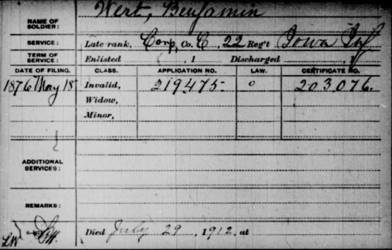 Wert, Benjamin
NAME OF SOLDIER:
SERVICE: Late rank, Corp, Co. C, 22 Reg't Iowa Inf
TERM OF SERVICE: Enlisted , 1 Discharged , 1
DATE OF FILING. CLASS. APPLICATION NO. LAW. CERTIFICATE NO.
1876 May 18 Invalid, 219475 203,076
Widow,
Minor,
ADDITIONAL SERVICES:
REMARKS:
Died July 29, 1912, at